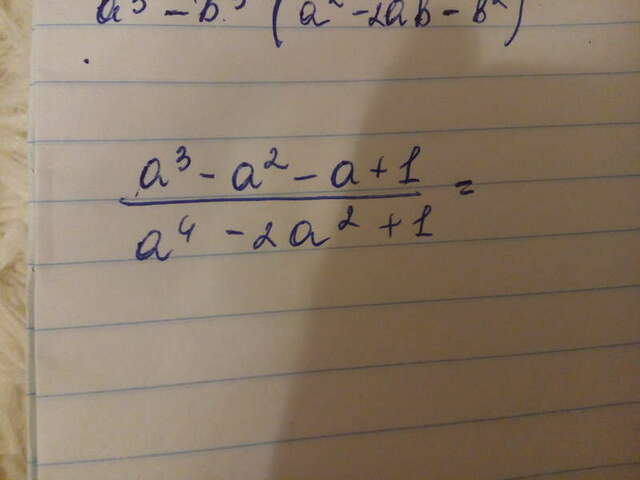 a³ - b³ (a² - 2ab - b²)
a³ - a² - a + 1
a⁴ - 2a² + 1 =